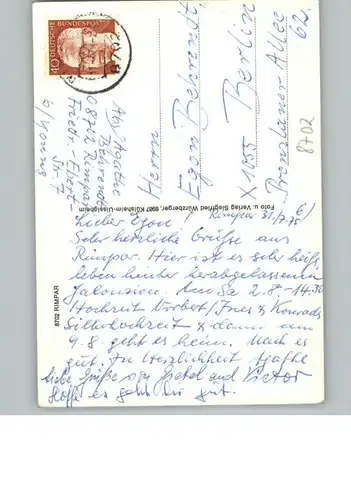 DEUTSCHE BUNDESPOST
40
Abs. Agathe
Behrendt
D8702 Rimpar
Friedr. Ebert-
Str. 7
b/
Herrn
Egon Behrendt
X 1055 Berlin
Prenzlauer Allee
62.
8702
Foto u. Verlag Siegfried Würzberger, 6987 Külsheim-Uissigheim
8702 RIMPAR
Rimpar 31/7.75
Lieber Egon!
Sehr herzliche Grüße aus
Rimpar. Hier ist es sehr heiß,
leben hinter herabgelassenen
Jalousien. Am Sa 2.8.-14.30
Hochzeit Norbert/Ines & Konrads
Silberhochzeit & dann am
9.8. geht es heim. Mach es
gut. In Herzlichkeit Agathe
Liebe Grüße von Gretel und Victor
Hoffe es geht Dir gut.